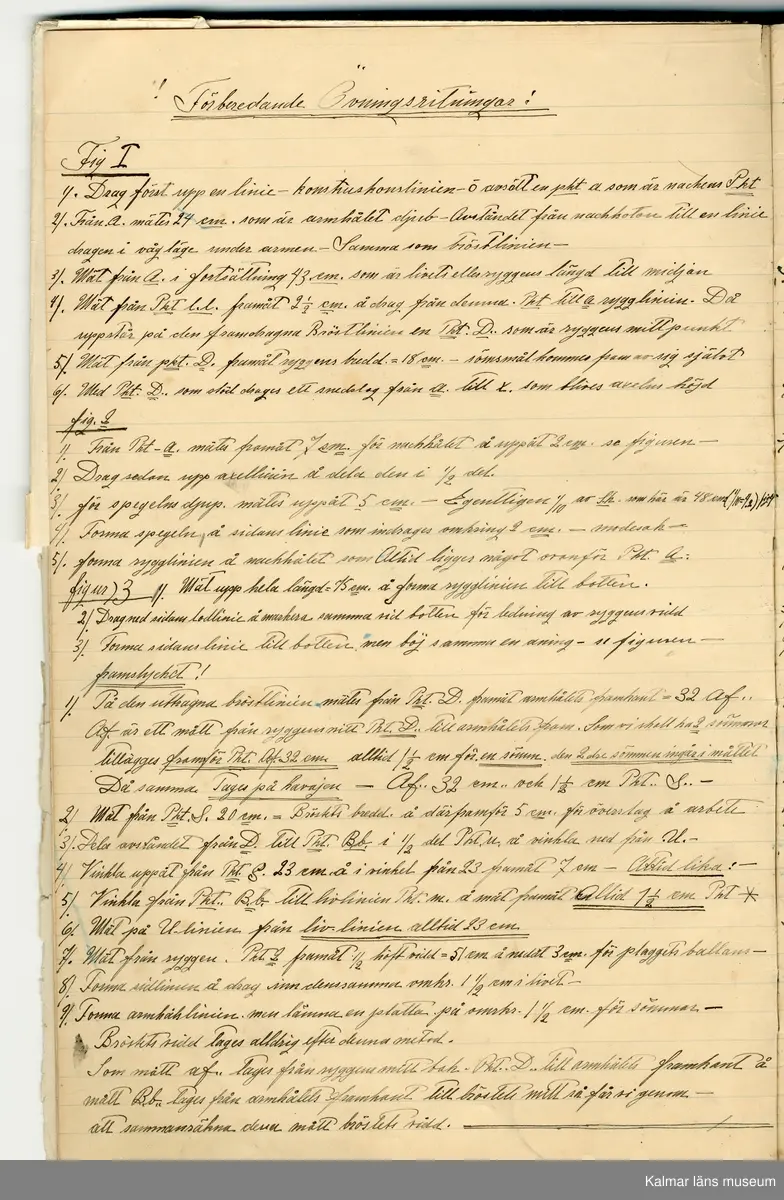 ! Förberedande Övningsritningar !
Fig I
1/. Drag först upp en linie – konstruktionslinien – o avsätt en pkt a som är nackens Pkt
2/. Från A. mätes 24 cm. som är armhålet djub – Avståndet från nackknoten till en linie
dragen i våg läge under armen – Samma som bröstlinien –
3/. Mät från A. i fortsättning 43 cm. som är livets eller ryggens längd till midjan
4/. Mät från Pkt l.l. framåt 2½ cm. å drag från denna. Pkt till a rygglinien. Då
uppstår på den framdragna Bröstlinien en Pkt. D. som är ryggens mittpunkt
5/. Mät från pkt. D. framåt ryggens bredd = 18 cm. – sömsmål kommer fram av sig självt
6/. Med Pkt. D. som stöd drages ett snedslag från a. till x. som blives axelns höjd
fig. 2
1/. Från Pkt – a. mätes framåt 7 cm. för nackhålet å uppåt 2 cm. se figuren –
2/. Drag sedan upp axellinin å dela den i 1/2 del.
3/. för spegelns djup. mätes uppåt 5 cm. – Egentligen 1/10 av som här är 48 cm
4/. Forma spegeln, å sidans linie som indrages omkring 2 cm. – modesak –
5/. forma rygglinien å nackhålet som Altid ligges något ovanför Pkt. A.:
figur) 3 1/. Mät upp hela längd = 75 cm. å forma rygglinien till botten.
2/. Drag ned sidans lodlinie å markera samma vid botten för ledning av ryggens vidd
3/. Forma sidans linie till botten, men böj samma en aning – se figuren –
framstycket !
1/. På den utdragna bröstlinien mätes från Pkt. D. framåt armhålets framkant = 32 Af..
Af. är ett mått från ryggens mitt Pkt. D.. till armhålets fram. Som vi skall ha 2 sömmar
tillägges framför Pkt. Af. 32 cm. alltid 1½ cm för en söm. den 2dre sömmen ingår i måttet
Då samma Tages på kavajen – Af.. 32 cm.. och 1½ cm Pkt.. S.. –
2/. Mät från Pkt. S. 20 cm. = Bröstets bredd. å därframför 5 cm. för överslag å arbete
3/. Dela avståndet från D. till Pkt. B.b. i 1/2 del Pkt u, å vinkla ned från U. –
4/. Vinkla uppåt från Pkt. S. 23 cm. å i vinkel från 23 framåt 7 cm – Altid lika ! –
5/. Vinkla från Pkt.. B.b. till livlinien Pkt. m. å mät framåt Altid 1½ cm Pkt *
6/. Mät på U-linien från liv-linien alltid 23 cm
7/. Mät från ryggen. Pkt 2 framåt 1/2 höft vidd = 51 cm å nedåt 3 cm. för plaggets ballans –
8/. Forma sidlinien å drag inn densamma omkr. 1½ cm i livet –
9/. Forma armhållinien. men lämna en platta på omkr. 1½ cm. för sömmar –
Bröstets vidd tages alldrig efter denna metod.
Som mått af.. tages från ryggens mitt bak. Pkt.. D.. till armhålets framkant å
mått B.b.. Tages från armhålets framkant till bröstets mitt så får vi genom –
att sammanräkna dessa mått bröstets vidd.
Kalmar läns museum